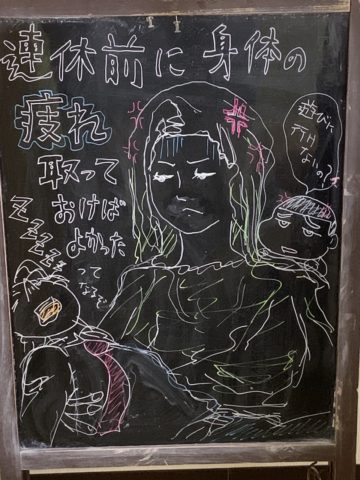 連休前に身体の
疲れ
取って
おけば
よかった
ってなるで
zzzzzzz
遊びに
行け